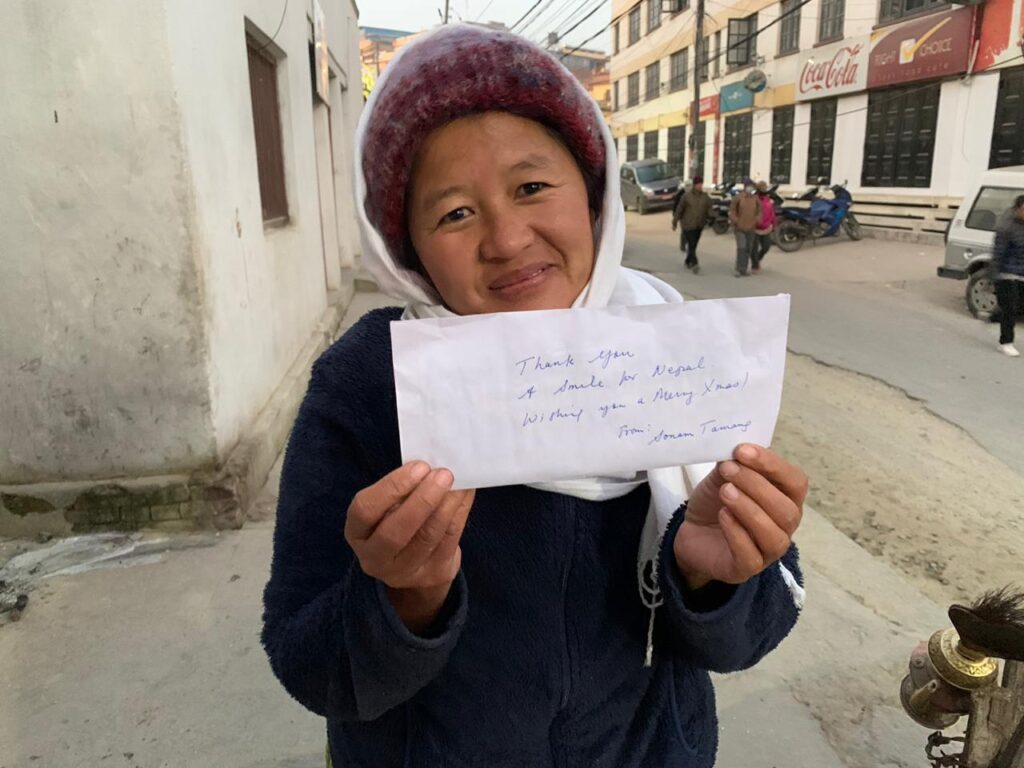 Coca-Cola
RIGHT CHOICE
Thank You
A Smile for Nepal.
Wishing you a Merry Xmas!
From: Sonam Tamang